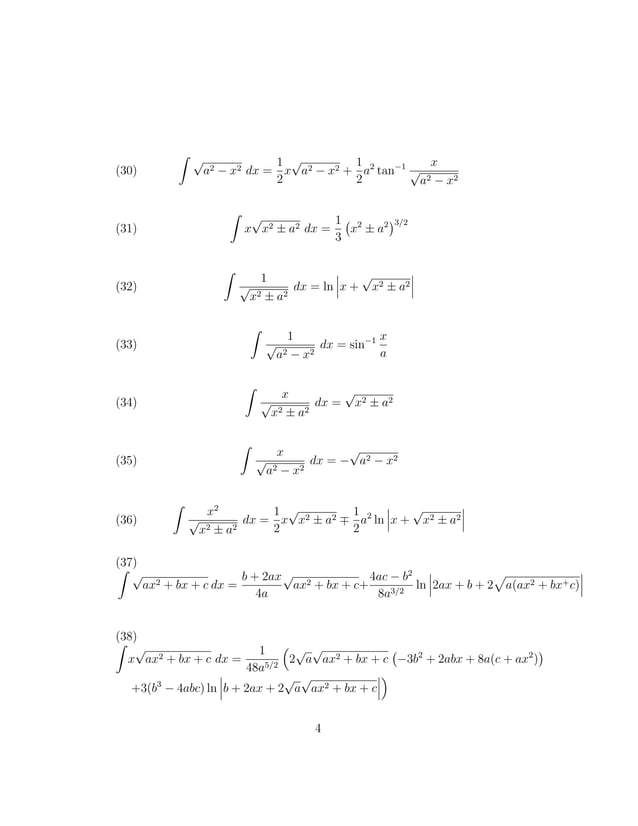 (30) ∫ √(a² − x²) dx = 1/2 x√(a² − x²) + 1/2 a² tan⁻¹ x/√(a² − x²)
(31) ∫ x√(x² ± a²) dx = 1/3 (x² ± a²)^{3/2}
(32) ∫ 1/√(x² ± a²) dx = ln |x + √(x² ± a²)|
(33) ∫ 1/√(a² − x²) dx = sin⁻¹ x/a
(34) ∫ x/√(x² ± a²) dx = √(x² ± a²)
(35) ∫ x/√(a² − x²) dx = −√(a² − x²)
(36) ∫ x²/√(x² ± a²) dx = 1/2 x√(x² ± a²) ∓ 1/2 a² ln |x + √(x² ± a²)|
(37)
∫ √(ax² + bx + c) dx = (b + 2ax)/4a √(ax² + bx + c) + (4ac − b²)/8a^{3/2} ln |2ax + b + 2√(a(ax² + bx⁺c))|
(38)
∫ x√(ax² + bx + c) dx = 1/48a^{5/2} (2√a√(ax² + bx + c) (−3b² + 2abx + 8a(c + ax²))
+3(b³ − 4abc) ln |b + 2ax + 2√a√(ax² + bx + c)|)
4